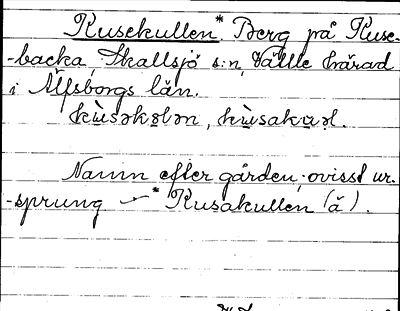 Kusekullen* Berg på Kuse-
-backa, Skallsjö s:n, Vättle härad
i Älfsborgs län.
kùsəkɞlən, kùsakɞl.
Namn efter gården; ovisst ur-
-sprung — *Kusakullen (å).